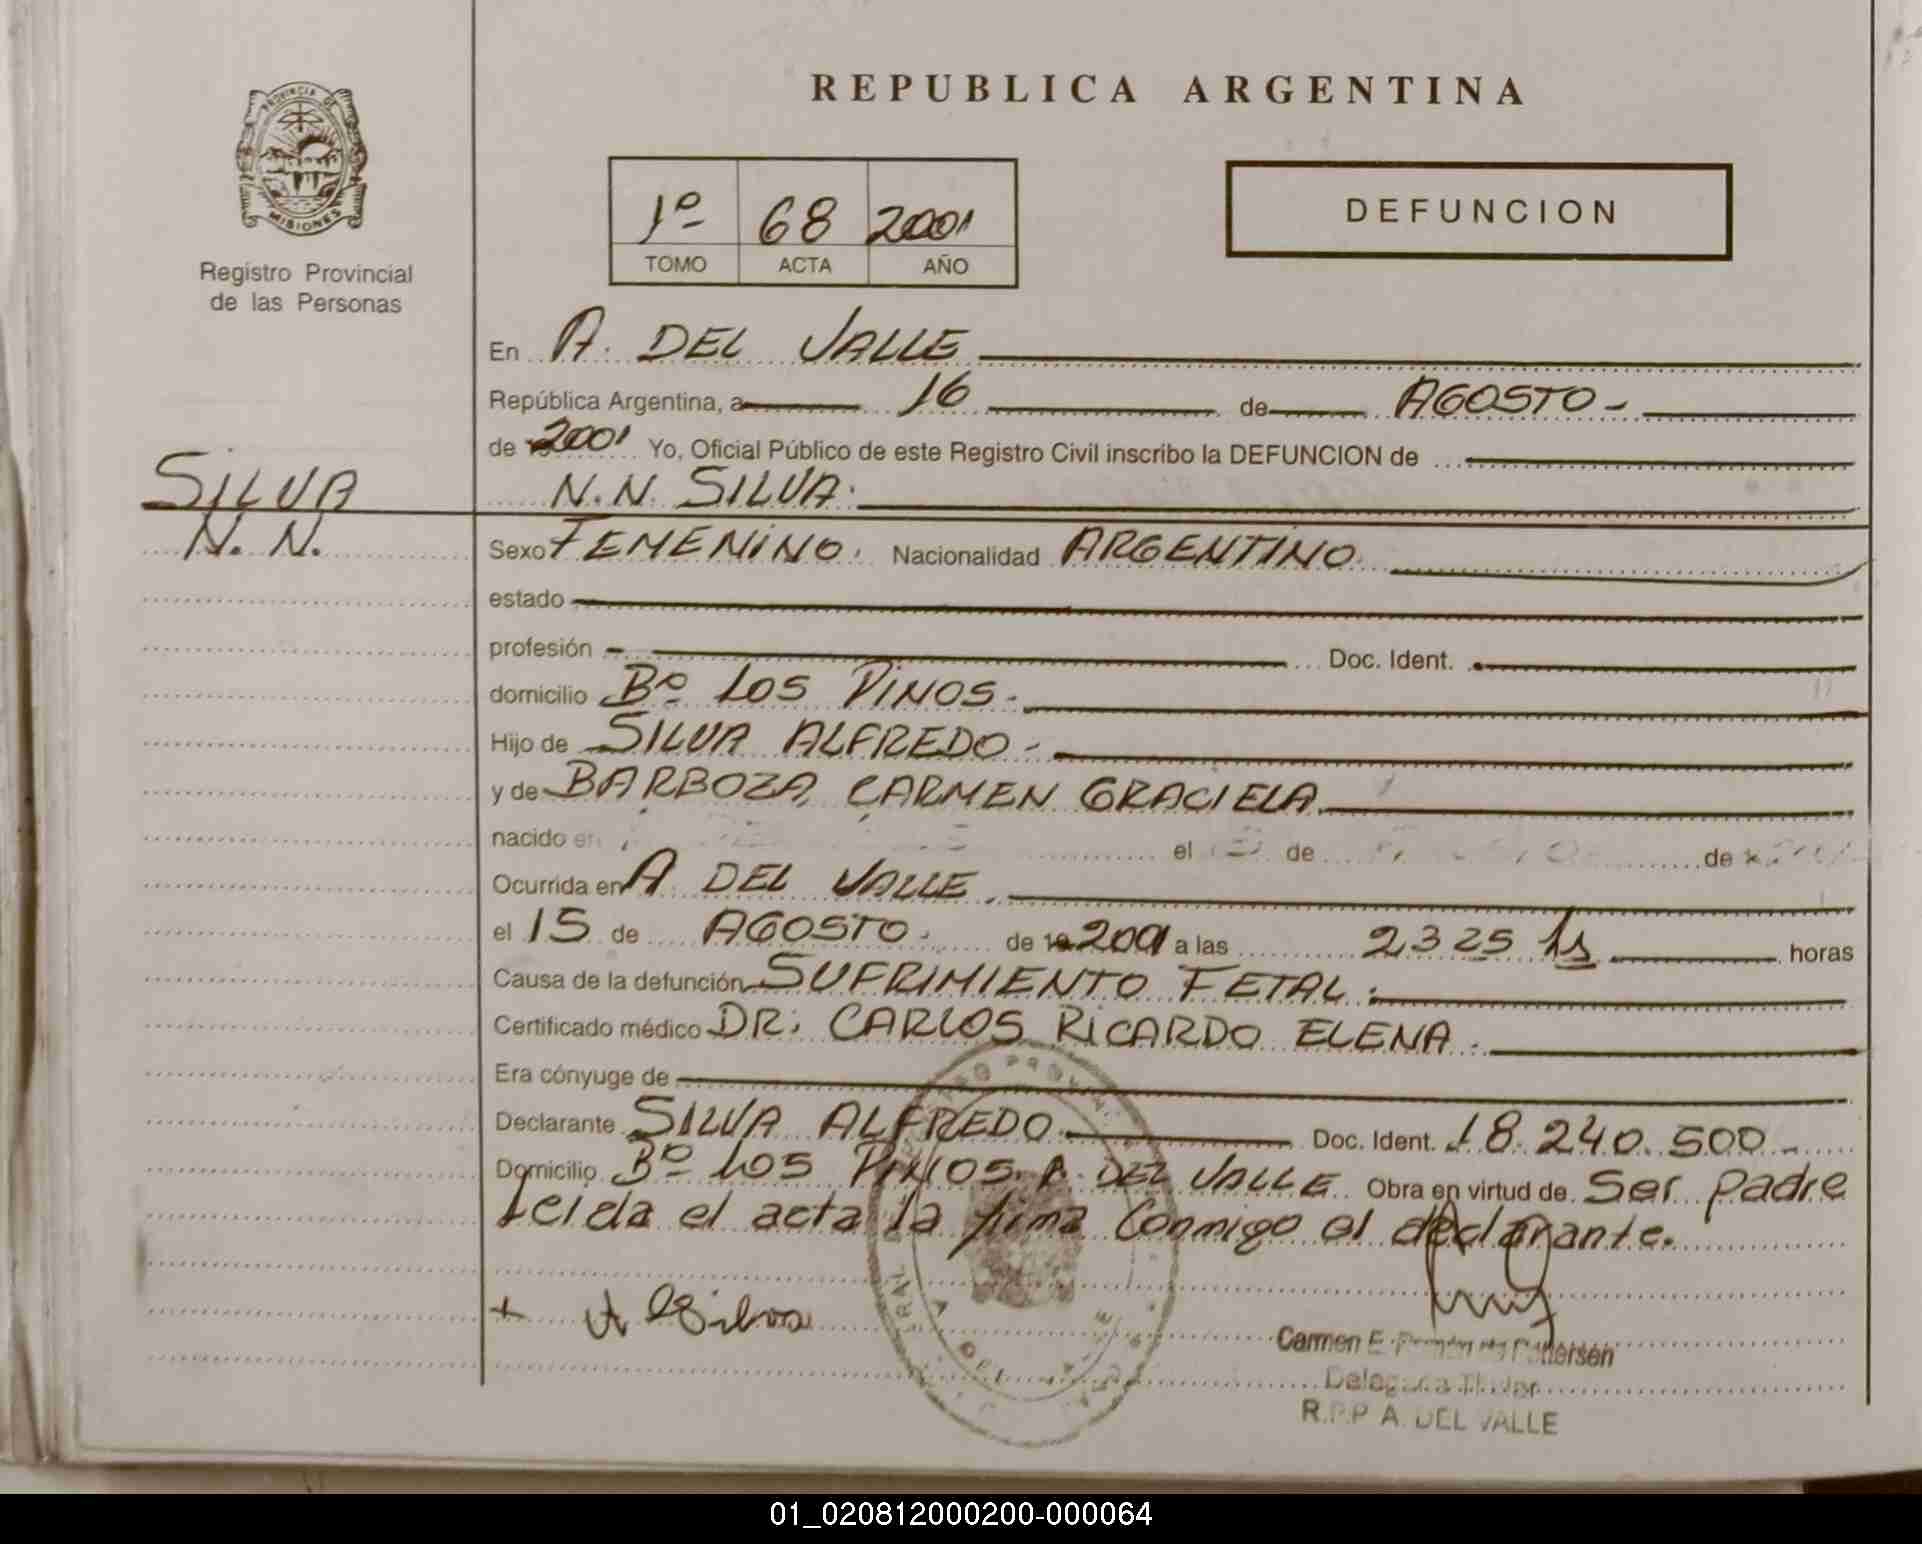 REPUBLICA ARGENTINA
PROVINCIA DE
MISIONES
Registro Provincial
de las Personas
1º 68 2001
TOMO ACTA AÑO
DEFUNCION
En A. DEL VALLE
República Argentina, a 16 de AGOSTO -
de 2001 Yo, Oficial Público de este Registro Civil inscribo la DEFUNCION de
N.N. SILVA.
SILVA
N. N.
Sexo FEMENINO. Nacionalidad ARGENTINO
estado
profesión - Doc. Ident.
domicilio Bº LOS PINOS -
Hijo de SILVA ALFREDO -
y de BARBOZA CARMEN GRACIELA
nacido en el de de
Ocurrida en A DEL VALLE.
el 15 de AGOSTO. de 2001 a las 23 25 hs horas
Causa de la defunción SUFRIMIENTO FETAL.
Certificado médico DR. CARLOS RICARDO ELENA.
Era cónyuge de
Declarante SILVA ALFREDO Doc. Ident. 18.240.500-
Domicilio Bº LOS PINOS. A. DEL VALLE Obra en virtud de Ser padre
Leida el acta la firma conmigo el declarante.
+ A Silva
Carmen E.
Delegada Titular
R.P.P A. DEL VALLE
01_020812000200-000064